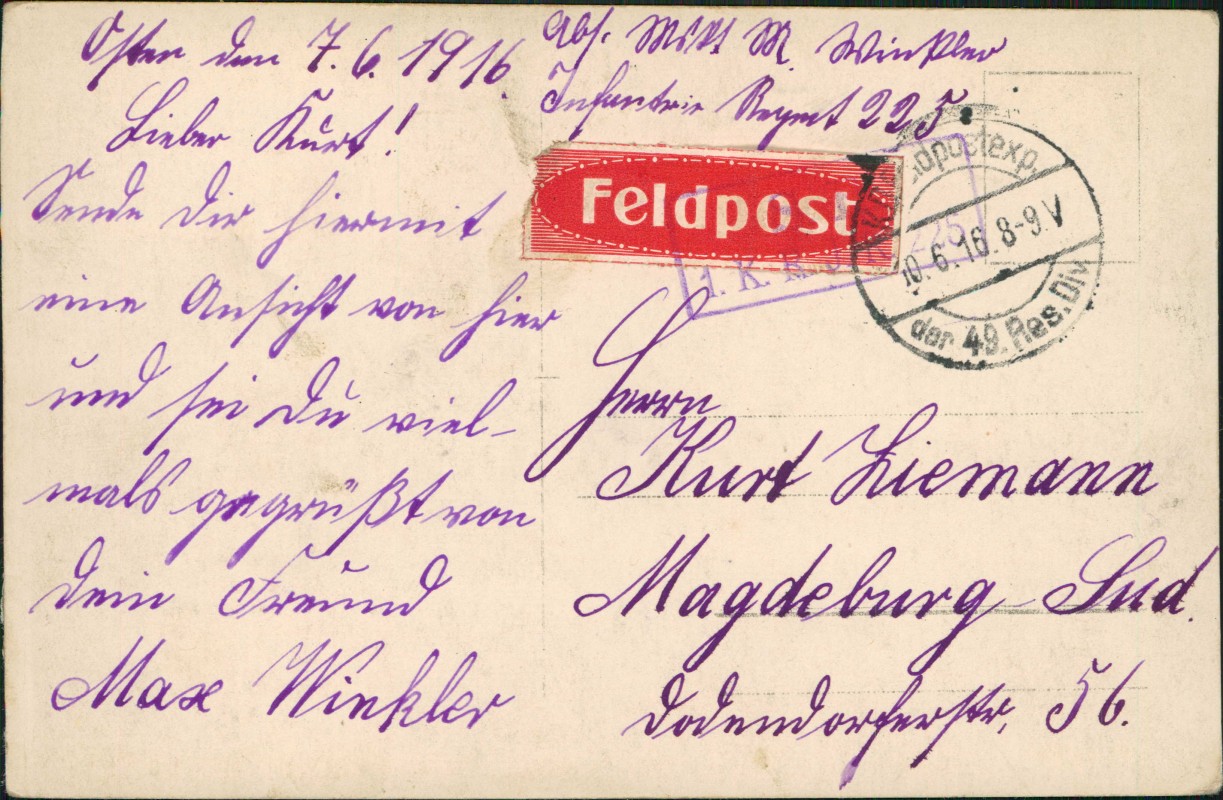 Osten den 7.6.1916.
Lieber Kurt!
Sende Dir hiermit
eine Ansicht von hier
und sei Du viel-
mals gegrüßt von
Dein Freund
Max Winkler
Abs. Mskt M. Winkler
Infantrie Regmt 225
Feldpost
1. K. R. 225
K.D. Feldpostexp.
10.6.16. 8-9 V
der 49. Res. Div.
Herrn
Kurt Liemann
Magdeburg-Sud.
Dodendorferstr. 56.